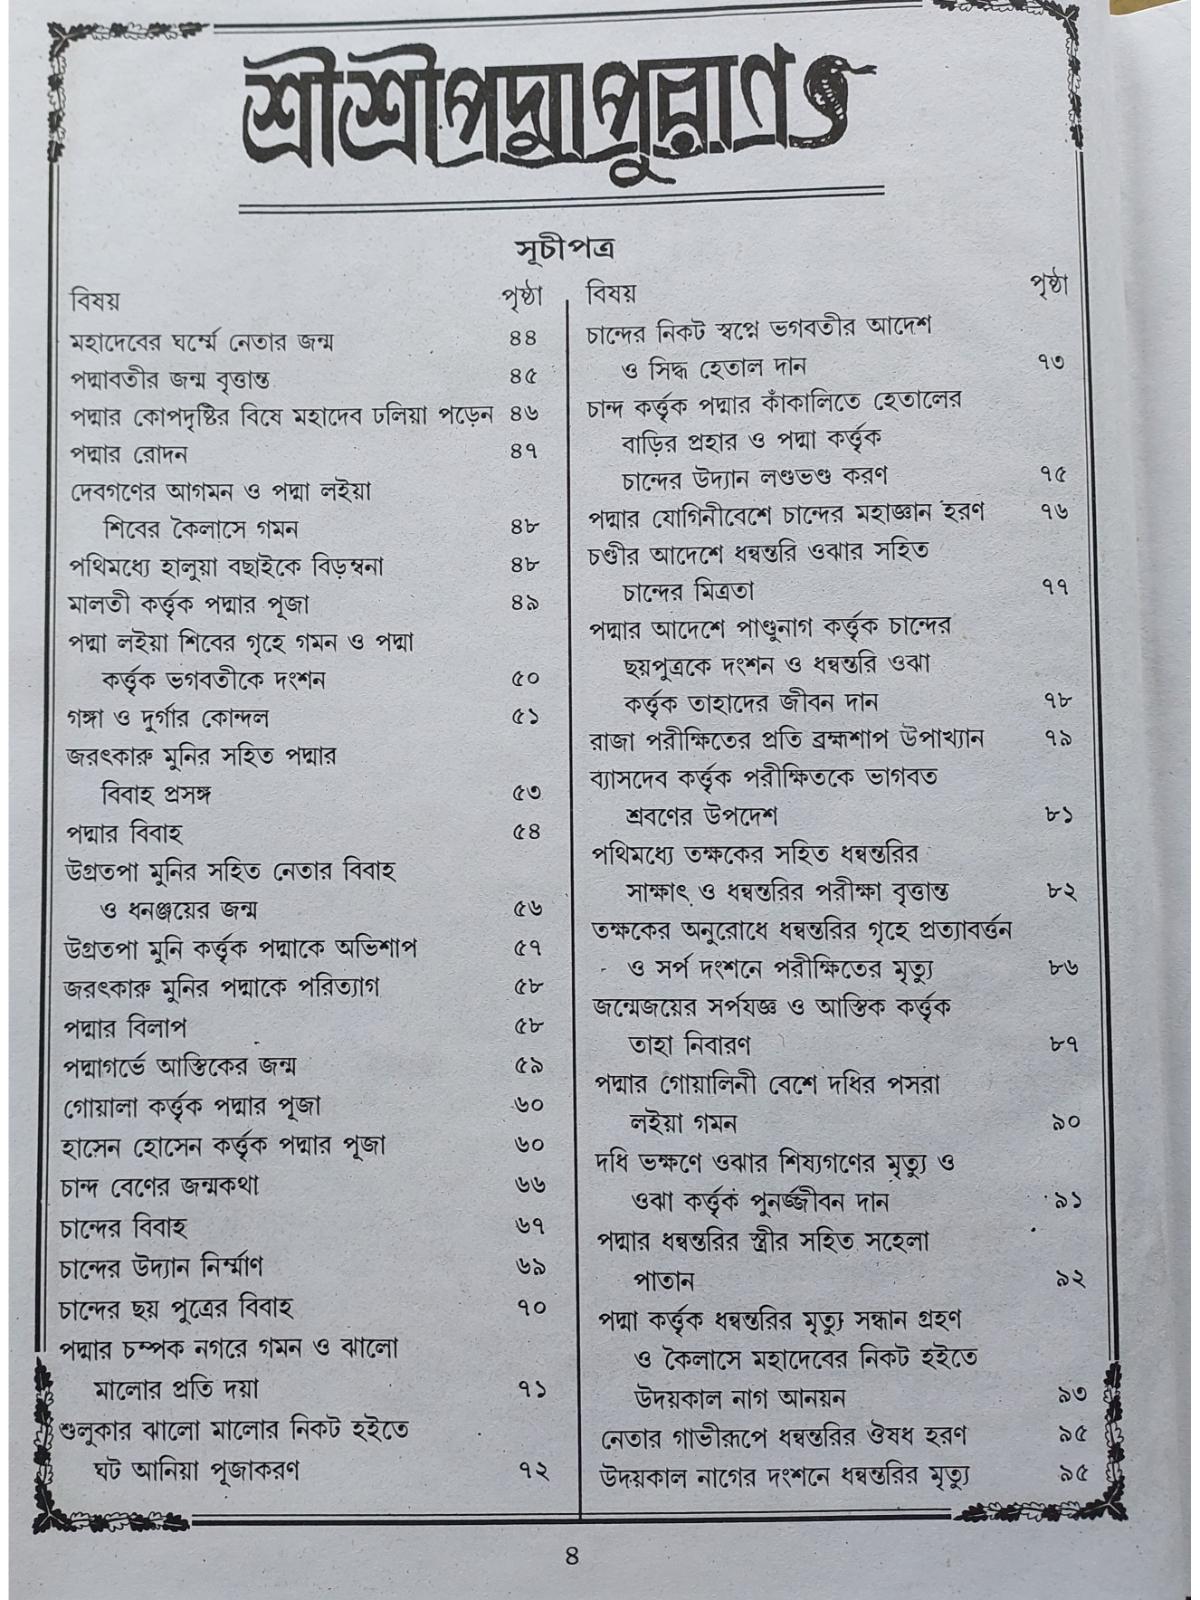 শ্রীশ্রীপদ্মাপুরাণ
সূচীপত্র
বিষয় পৃষ্ঠা
মহাদেবের ঘর্ম্মে নেতার জন্ম ৪৪
পদ্মাবতীর জন্ম বৃত্তান্ত ৪৫
পদ্মার কোপদৃষ্টির বিষে মহাদেব ঢলিয়া পড়েন ৪৬
পদ্মার রোদন ৪৭
দেবগণের আগমন ও পদ্মা লইয়া
শিবের কৈলাসে গমন ৪৮
পথিমধ্যে হালুয়া বছাইকে বিড়ম্বনা ৪৮
মালতী কর্ত্তৃক পদ্মার পূজা ৪৯
পদ্মা লইয়া শিবের গৃহে গমন ও পদ্মা
কর্ত্তৃক ভগবতীকে দংশন ৫০
গঙ্গা ও দুর্গার কোন্দল ৫১
জরৎকারু মুনির সহিত পদ্মার
বিবাহ প্রসঙ্গ ৫৩
পদ্মার বিবাহ ৫৪
উগ্রতপা মুনির সহিত নেতার বিবাহ
ও ধনঞ্জয়ের জন্ম ৫৬
উগ্রতপা মুনি কর্ত্তৃক পদ্মাকে অভিশাপ ৫৭
জরৎকারু মুনির পদ্মাকে পরিত্যাগ ৫৮
পদ্মার বিলাপ ৫৮
পদ্মাগর্ভে আস্তিকের জন্ম ৫৯
গোয়ালা কর্ত্তৃক পদ্মার পূজা ৬০
হাসেন হোসেন কর্ত্তৃক পদ্মার পূজা ৬০
চান্দ বেণের জন্মকথা ৬৬
চান্দের বিবাহ ৬৭
চান্দের উদ্যান নির্ম্মাণ ৬৯
চান্দের ছয় পুত্রের বিবাহ ৭০
পদ্মার চম্পক নগরে গমন ও ঝালো
মালোর প্রতি দয়া ৭১
শুলুকার ঝালো মালোর নিকট হইতে
ঘট আনিয়া পূজাকরণ ৭২
বিষয় পৃষ্ঠা
চান্দের নিকট স্বপ্নে ভগবতীর আদেশ
ও সিদ্ধ হেতাল দান ৭৩
চান্দ কর্ত্তৃক পদ্মার কাঁকালিতে হেতালের
বাড়ির প্রহার ও পদ্মা কর্ত্তৃক
চান্দের উদ্যান লণ্ডভণ্ড করণ ৭৫
পদ্মার যোগিনীবেশে চান্দের মহাজ্ঞান হরণ ৭৬
চণ্ডীর আদেশে ধন্বন্তরি ওঝার সহিত
চান্দের মিত্রতা ৭৭
পদ্মার আদেশে পাণ্ডুনাগ কর্ত্তৃক চান্দের
ছয়পুত্রকে দংশন ও ধন্বন্তরি ওঝা
কর্ত্তৃক তাহাদের জীবন দান ৭৮
রাজা পরীক্ষিতের প্রতি ব্রহ্মশাপ উপাখ্যান ৭৯
ব্যাসদেব কর্ত্তৃক পরীক্ষিতকে ভাগবত
শ্রবণের উপদেশ ৮১
পথিমধ্যে তক্ষকের সহিত ধন্বন্তরির
সাক্ষাৎ ও ধন্বন্তরির পরীক্ষা বৃত্তান্ত ৮২
তক্ষকের অনুরোধে ধন্বন্তরির গৃহে প্রত্যাবর্ত্তন
ও সর্প দংশনে পরীক্ষিতের মৃত্যু ৮৬
জন্মেজয়ের সর্পযজ্ঞ ও আস্তিক কর্ত্তৃক
তাহা নিবারণ ৮৭
পদ্মার গোয়ালিনী বেশে দধির পসরা
লইয়া গমন ৯০
দধি ভক্ষণে ওঝার শিষ্যগণের মৃত্যু ও
ওঝা কর্ত্তৃক পুনর্জ্জীবন দান ৯১
পদ্মার ধন্বন্তরির স্ত্রীর সহিত সহেলা
পাতান ৯২
পদ্মা কর্ত্তৃক ধন্বন্তরির মৃত্যু সন্ধান গ্রহণ
ও কৈলাসে মহাদেবের নিকট হইতে
উদয়কাল নাগ আনয়ন ৯৩
নেতার গাভীরূপে ধন্বন্তরির ঔষধ হরণ ৯৫
উদয়কাল নাগের দংশনে ধন্বন্তরির মৃত্যু ৯৫
৪